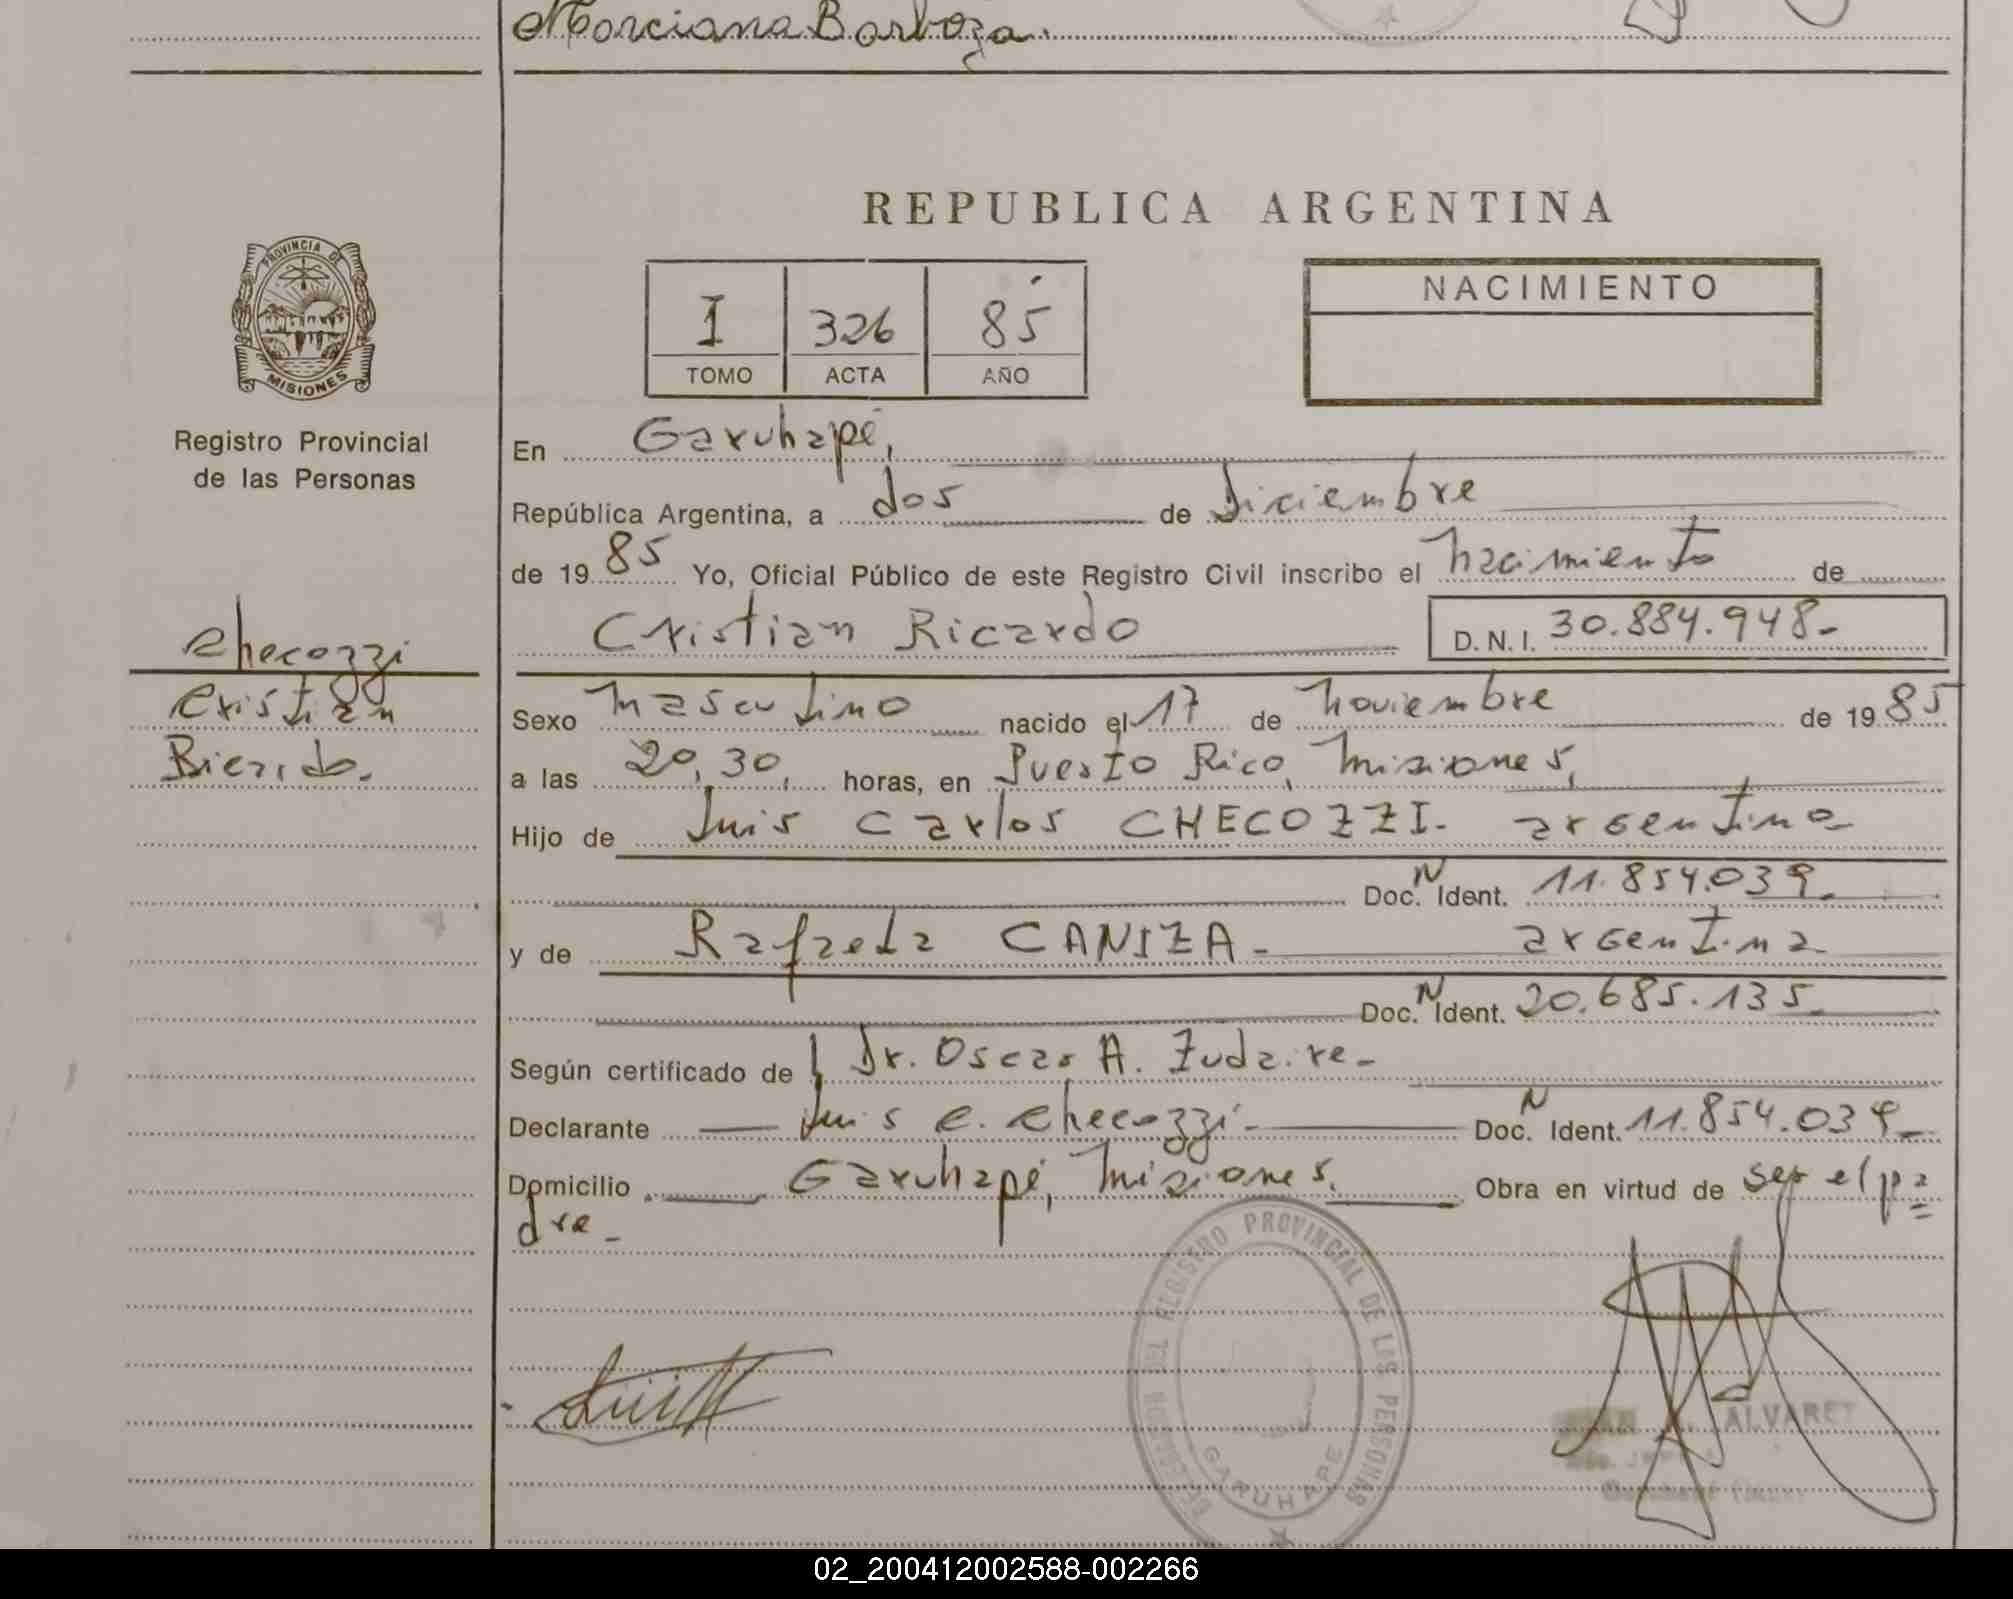 Marciana Barboza.
REPUBLICA ARGENTINA
PROVINCIA DE
MISIONES
Registro Provincial
de las Personas
I 326 85
TOMO ACTA AÑO
NACIMIENTO
En Garuhapé,
República Argentina, a dos de Diciembre
de 1985 Yo, Oficial Público de este Registro Civil inscribo el nacimiento de
Cristian Ricardo D.N.I. 30.884.948-
Checozzi
Cristian
Sexo masculino nacido el 17 de noviembre de 1985
a las 20,30, horas, en Puerto Rico, Misiones,
Hijo de Luis Carlos CHECOZZI- argentino-
Doc. N Ident. 11.854.039-
y de Rafaela CANIZA- argentina
Doc. N Ident. 20.685.135-
Según certificado de Dr. Oscar A. Zudaire-
Declarante Luis C. Checozzi- Doc. N Ident. 11.854.039-
Domicilio Garuhapé, Misiones. Obra en virtud de ser el pa=
dre-
REGISTRO PROVINCIAL DE LAS PERSONAS
GARUHAPE
ALVAREZ
02_200412002588-002266